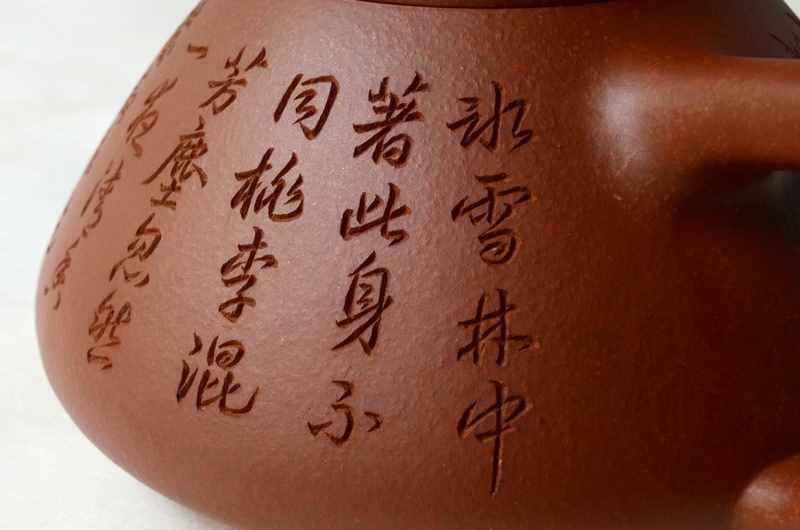 冰雪林中
著此身不
同桃李混
芳塵忽然
一夜清香